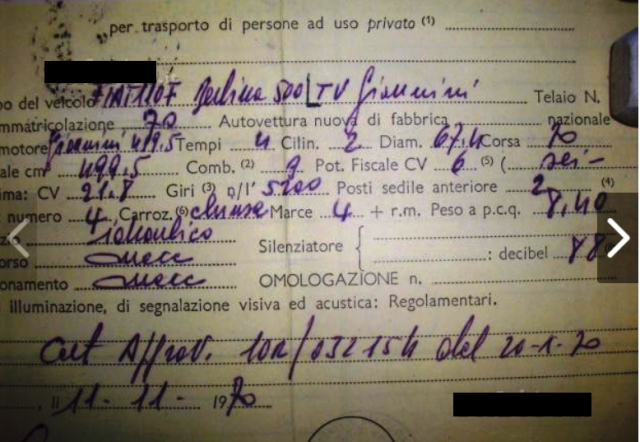 per trasporto di persone ad uso privato (1)
po del veicolo FIAT 110F Berlina 500L TV Giannini Telaio N.
mmatricolazione 70 Autovettura nuova di fabbrica nazionale
motore Giannini Tempi 4 Cilin. 2 Diam. 67.4 Corsa 70
ale cm³ 499.5 Comb. (2) 9 Pot. Fiscale CV 6 (5) ( sei -
ima: CV 21.8 Giri (3) n/1' 5200 Posti sedile anteriore 2 (4)
numero 4 Carroz. (6) chiusa Marce 4 + r.m. Peso a p.c.q. 8,40
idraulico
Silenziatore
orso mecc : decibel 88
onamento mecc OMOLOGAZIONE n.
illuminazione, di segnalazione visiva ed acustica: Regolamentari.
Cert Approv. del 20-1-70
lì 11 - 11 - 1970